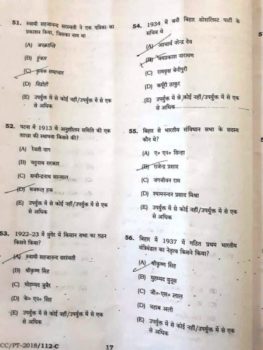 51. स्वामी सहजानन्द सरस्वती ने एक पत्रिका का
प्रकाशन किया, जिसका नाम था
(A) जनक्रान्ति
(B) हुंकार
(C) कृषक समाचार
(D) विद्रोही
(E) उपर्युक्त में से कोई नहीं/उपर्युक्त में से एक
से अधिक
52. पटना में 1913 में अनुशीलन समिति की एक
शाखा की स्थापना किसने की?
(A) रेवती नाग
(B) यदुनाथ सरकार
(C) सचीन्द्रनाथ सान्याल
(D) मजहरुल हक
(E) उपर्युक्त में से कोई नहीं/उपर्युक्त में से एक
से अधिक
53. 1922-23 में मुंगेर में किसान सभा का गठन
किसने किया?
(A) स्वामी सहजानन्द सरस्वती
(B) श्रीकृष्ण सिंह
(C) मोहम्मद जुबैर
(D) के० एन० सिंह
(E) उपर्युक्त में से कोई नहीं/उपर्युक्त में से एक
से अधिक
CC/PT-2018/112-C
17
54. 1934 में बनी बिहार सोशलिस्ट पार्टी के
सचिव थे
(A) आचार्य नरेन्द्र देव
(B) जयप्रकाश नारायण
(C) रामवृक्ष बेनीपुरी
(D) कर्पूरी ठाकुर
(E) उपर्युक्त में से कोई नहीं/उपर्युक्त में से एक
से अधिक
55. बिहार से भारतीय संविधान सभा के सदस्य
कौन थे?
(A) ए० एन० सिन्हा
(B) राजेन्द्र प्रसाद
(C) जगजीवन राम
(D) श्यामनन्दन प्रसाद मिश्रा
(E) उपर्युक्त में से कोई नहीं/उपर्युक्त में से एक
से अधिक
56. बिहार में 1937 में गठित प्रथम भारतीय
मंत्रिमंडल का नेतृत्व किसने किया?
(A) श्रीकृष्ण सिंह
(B) मुहम्मद युनूस
(C) जी० एस० लाल
(D) वहाब अली
(E) उपर्युक्त में से कोई नहीं/उपर्युक्त में से एक
से अधिक